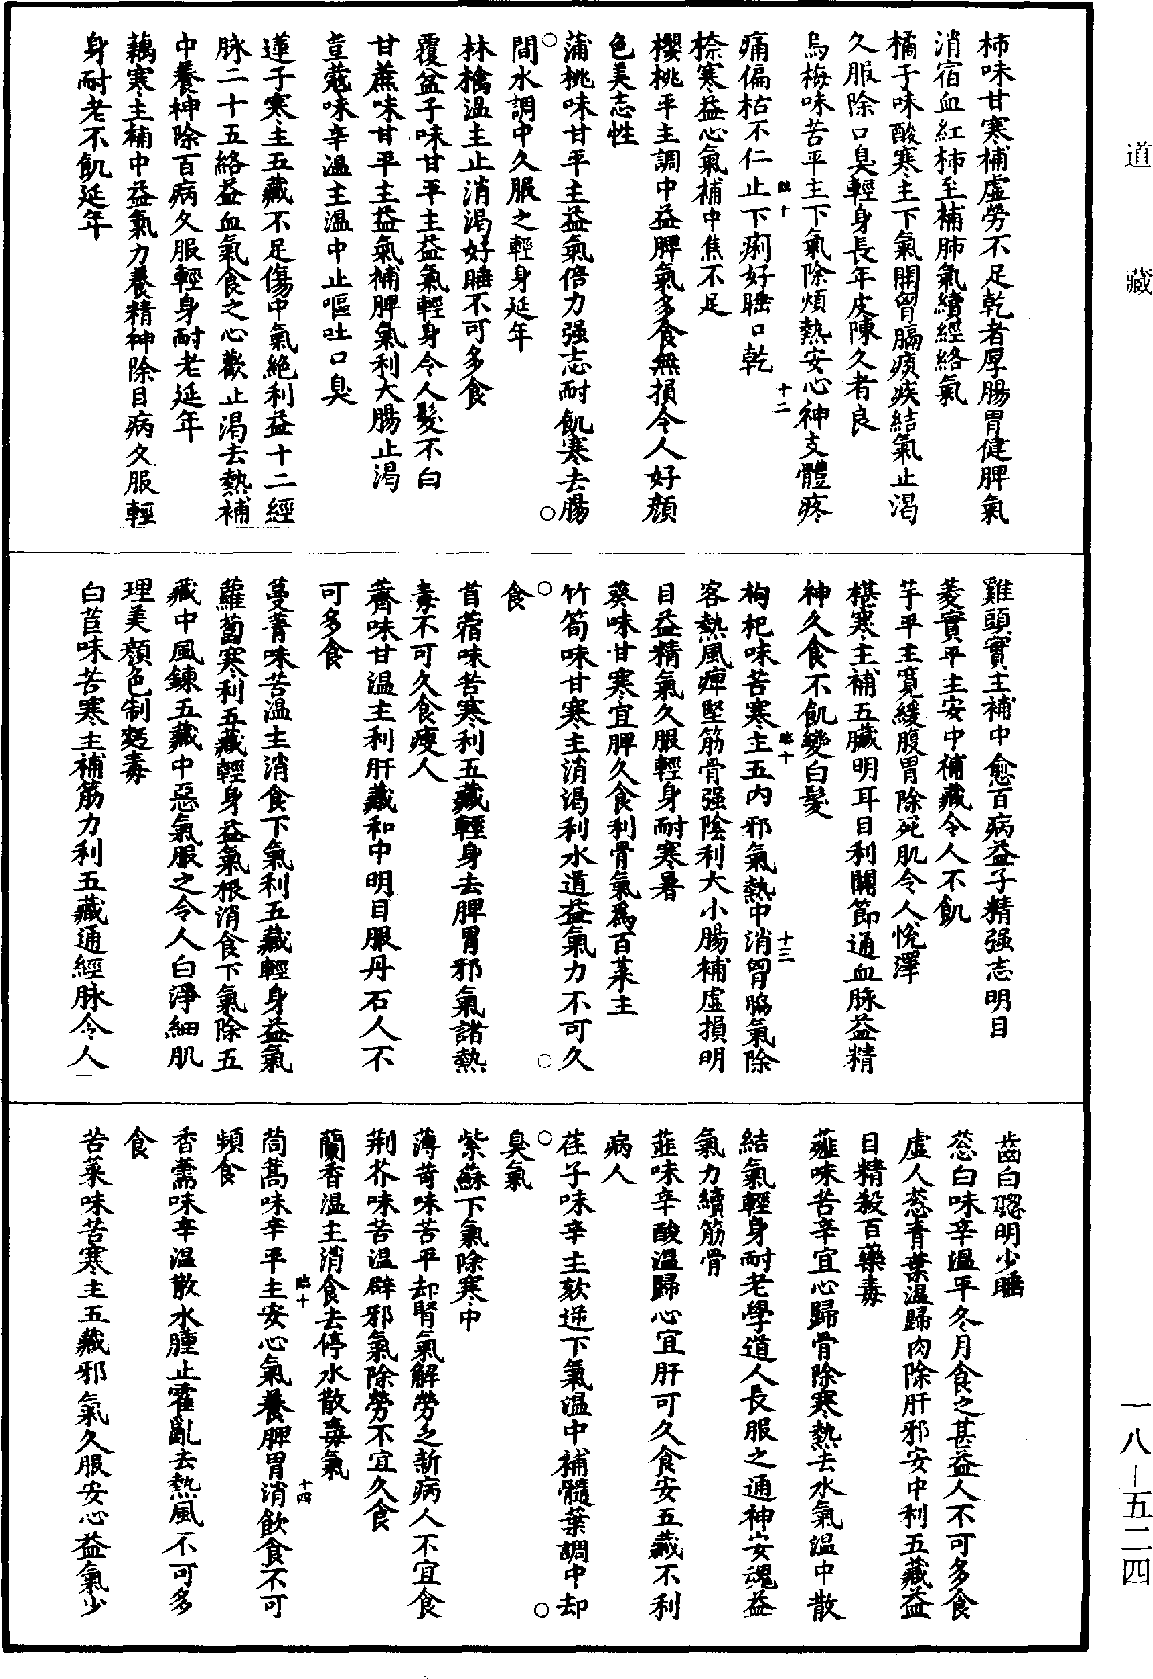 道藏
柿味甘寒補虛勞不足乾者厚腸胃健脾氣
消宿血紅柿至補肺氣續經絡氣
橘子味酸寒主下氣開胷膈痰疾結氣止渴
久服除口臭輕身長年皮陳久者良
烏梅味苦平主下氣除煩熱安心神支體疼
痛偏枯不仁止下痢好睡口乾
臨十 十二
㮏寒益心氣補中焦不足
櫻桃平主調中益脾氣多食無損令人好顏
色美志性
蒲桃味甘平主益氣倍力强志耐飢寒去腸
間水調中久服之輕身延年
林檎溫主止消渴好睡不可多食
覆盆子味甘平主益氣輕身令人髮不白
甘蔗味甘平主益氣補脾氣利大腸止渴
荳蔻味辛溫主溫中止嘔吐口臭
蓮子寒主五藏不足傷中氣絶利益十二經
脉二十五絡益血氣食之心歡止渴去熱補
中養神除百病久服輕身耐老延年
藕寒主補中益氣力養精神除目病久服輕
身耐老不飢延年
雞頭實主補中愈百病益子精强志明目
菱實平主安中補藏令人不飢
芋平主寬緩腹胃除死肌令人悅澤
椹寒主補五臟明耳目利關節通血脉益精
神久食不飢變白髮
枸杞味苦寒主五內邪氣熱中消胷脇氣除
臨十 十三
客熱風痺堅筋骨强陰利大小腸補虛損明
目益精氣久服輕身耐寒暑
葵味甘寒宜脾久食利骨氣爲百菜主
竹筍味甘寒主消渴利水道益氣力不可久
食
苜蓿味苦寒利五藏輕身去脾胃邪氣諸熱
毒不可久食瘦人
薺味甘溫主利肝藏和中明目服丹石人不
可多食
蔓菁味苦溫主消食下氣利五藏輕身益氣
蘿蔔寒利五藏輕身益氣根消食下氣除五
藏中風鍊五藏中惡氣服之令人白淨細肌
理美顏色制麪毒
白苣味苦寒主補筋力利五藏通經脉令人
齒白聰明少睡
葱白味辛溫平冬月食之甚益人不可多食
虛人葱青葉溫歸肉除肝邪安中利五藏益
目精殺百藥毒
薤味苦辛宜心歸骨除寒熱去水氣溫中散
結氣輕身耐老學道人長服之通神安魂益
氣力續筋骨
韮味辛酸溫歸心宜肝可久食安五藏不利
病人
荏子味辛主欬逆下氣溫中補髓葉調中却
臭氣
紫蘇下氣除寒中
薄苛味苦平却腎氣解勞乏新病人不宜食
荆芥味苦溫辟邪氣除勞不宜久食
蘭香溫主消食去停水散毒氣
茼蒿味辛平主安心氣養脾胃消飲食不可
臨十 十四
頻食
香薷味辛溫散水腫止霍亂去熱風不可多
食
苦菜味苦寒主五藏邪氣久服安心益氣少
一八—五二四